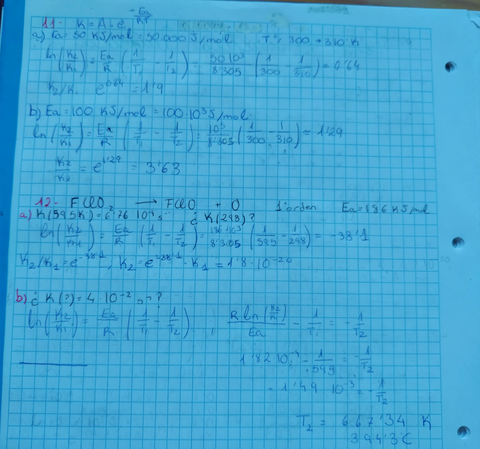 11.- K = A · e^(-Ea/RT)
a) Ea = 50 KJ/mol = 50.000 J/mol T = 300 → 310 K
ln(K2/K1) = Ea/R (1/T1 - 1/T2) = 50·10³/8'305 (1/300 - 1/310) = 0'64
K2/K1 e^0'64 = 1'9
b) Ea = 100 KJ/mol = 100·10³ J/mol
ln(K2/K1) = Ea/R (1/T1 - 1/T2) = 10⁵/8'305 (1/300 - 1/310) = 1'29
K2/K1 = e^1'29 = 3'63
12.- FClO2 → FClO + O 1ºorden Ea = 186 KJ/mol
a) K(595K) = 6'76 10⁻⁴ s⁻¹ ¿K(298)?
ln(K2/K1) = Ea/R (1/T1 - 1/T2) = 186·10³/8'305 (1/595 - 1/298) = -38'1
K2/K1 = e^-38'1, K2 = e^-38'1 · K1 = 1'8 · 10⁻²⁰
b) ¿K(?) = 4·10⁻² s⁻¹?
ln(K2/K1) = Ea/R (1/T1 - 1/T2), R ln(K2/K1)/Ea - 1/T1 = -1/T2
1'82 10⁻⁴ - 1/595 = -1/T2
- 1'49 10⁻³ = -1/T2
T2 = 667'34 K
394'3ºC